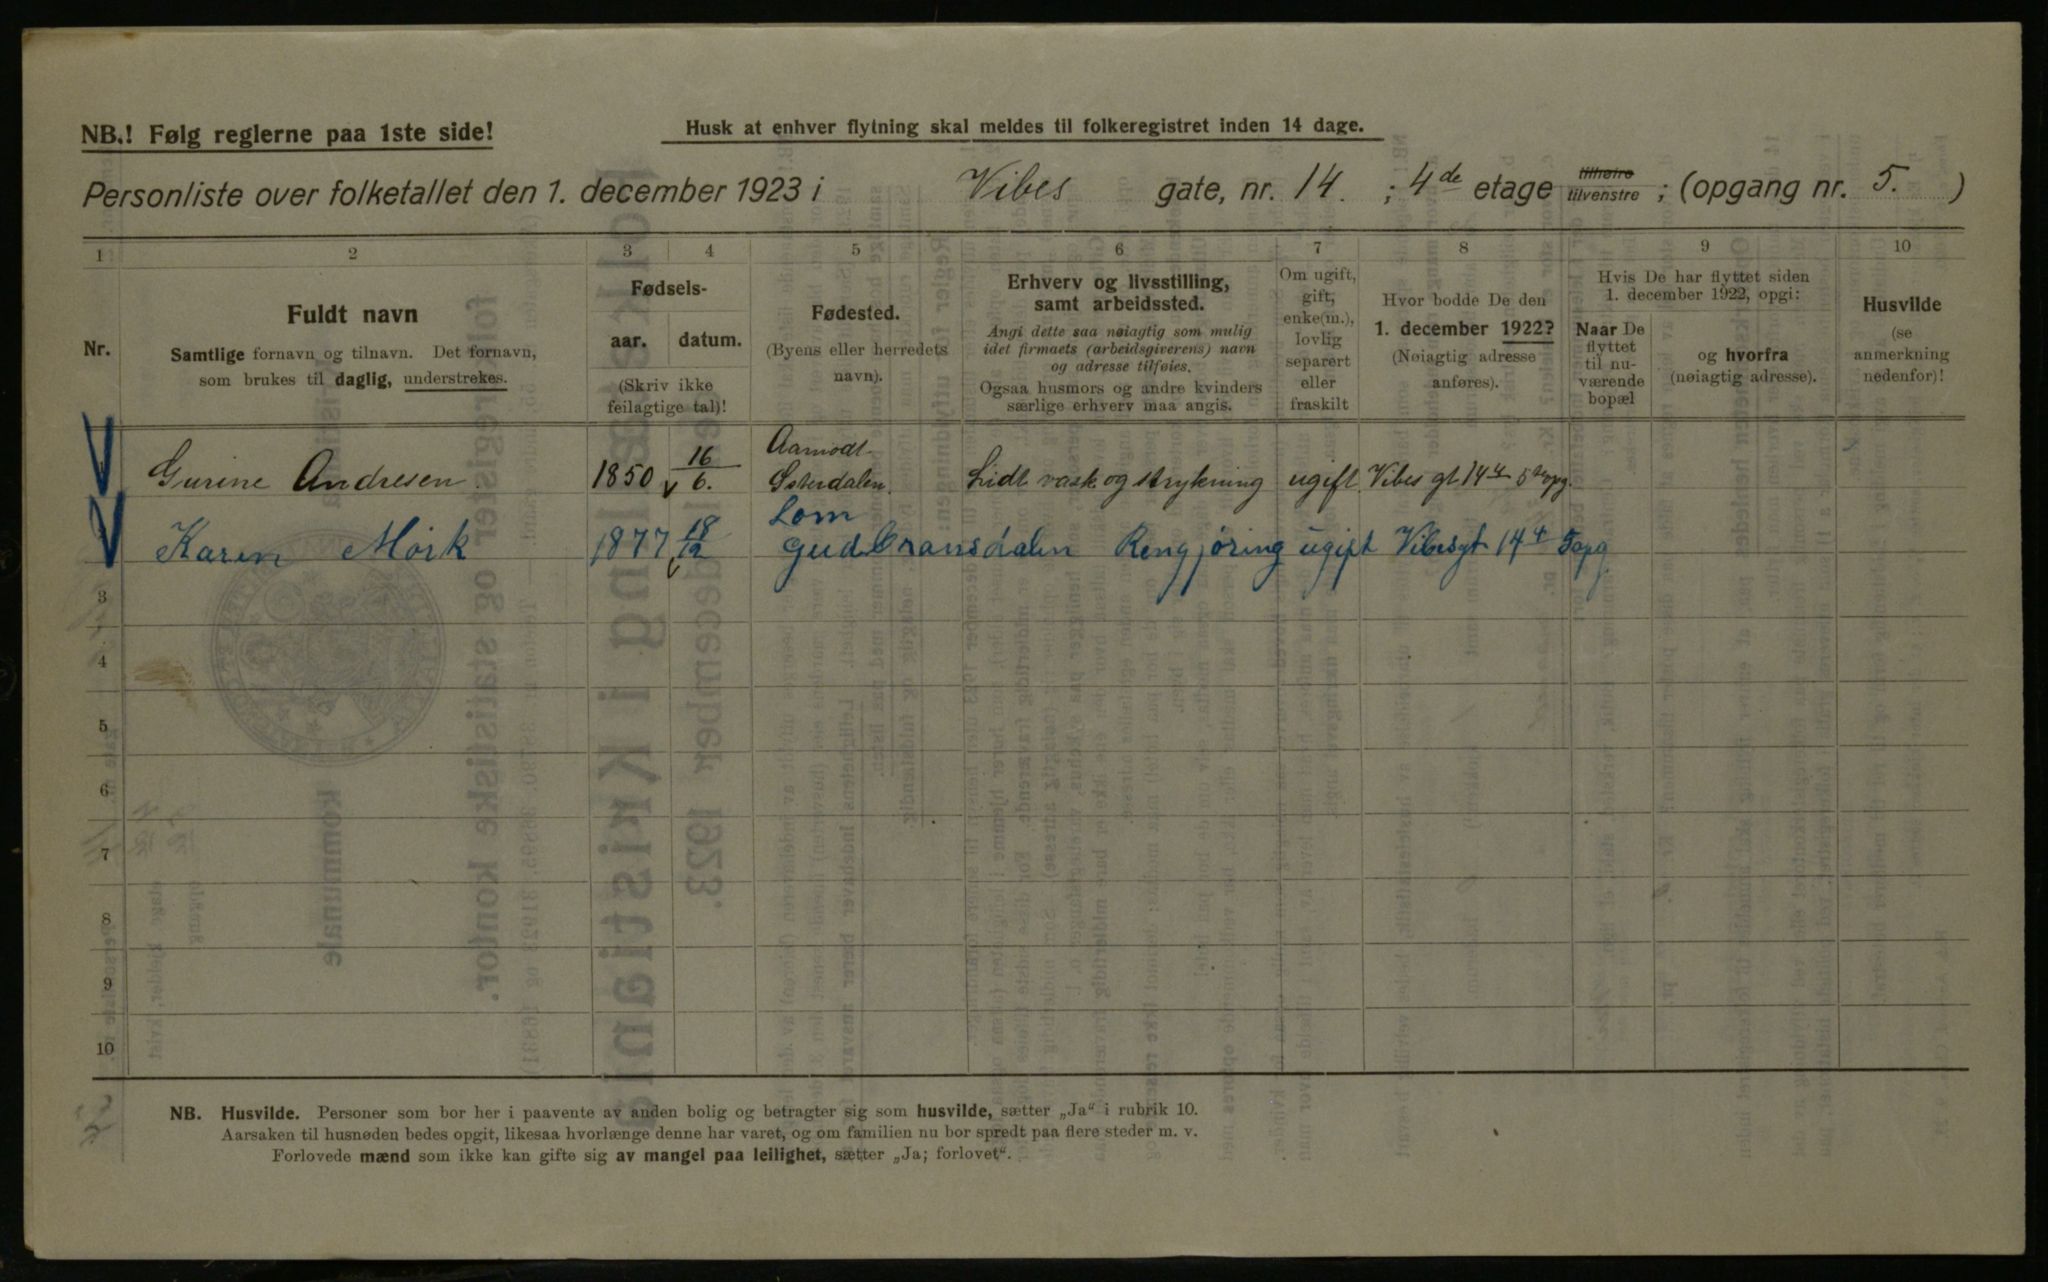 NB.! Følg reglerne paa 1ste side!
Husk at enhver flytning skal meldes til folkeregistret inden 14 dage.
Personliste over folketallet den 1. december 1923 i Vibes gate, nr. 14. ; 4de etage tilhøire tilvenstre ; (opgang nr. 5. )
1 2 3 4 5 6 7 8 9 10
Nr.
Fuldt navn
Samtlige fornavn og tilnavn. Det fornavn,
som brukes til daglig, understrekes.
Fødsels-
aar. datum.
(Skriv ikke
feilagtige tal)!
Fødested.
(Byens eller herredets
navn).
Erhverv og livsstilling,
samt arbeidssted.
Angi dette saa nøiagtig som mulig
idet firmaets (arbeidsgiverens) navn
og adresse tilføies.
Ogsaa husmors og andre kvinders
særlige erhverv maa angis.
Om ugift,
gift,
enke(m.),
lovlig
separert
eller
fraskilt
Hvor bodde De den
1. december 1922?
(Nøiagtig adresse
anføres).
Hvis De har flyttet siden
1. december 1922, opgi:
Naar De
flyttet
til nu-
værende
bopæl
og hvorfra
(nøiagtig adresse).
Husvilde
(se
anmerkning
nedenfor)!
Gurine Andresen 1850 16/6. Aamodt Østerdalen. Lidt vask og strykning ugift. Vibes gt 14 4 5te opg.
Karen Mörk 1877 18/12 Lom Gudbransdalen Rengjøring ugift Vibesgt 14 4 5 opg
3
4
5
6
7
8
9
10
NB. Husvilde. Personer som bor her i paavente av anden bolig og betragter sig som husvilde, sætter „Ja“ i rubrik 10.
Aarsaken til husnøden bedes opgit, likesaa hvorlænge denne har varet, og om familien nu bor spredt paa flere steder m. v.
Forlovede mænd som ikke kan gifte sig av mangel paa leilighet, sætter „Ja; forlovet“.